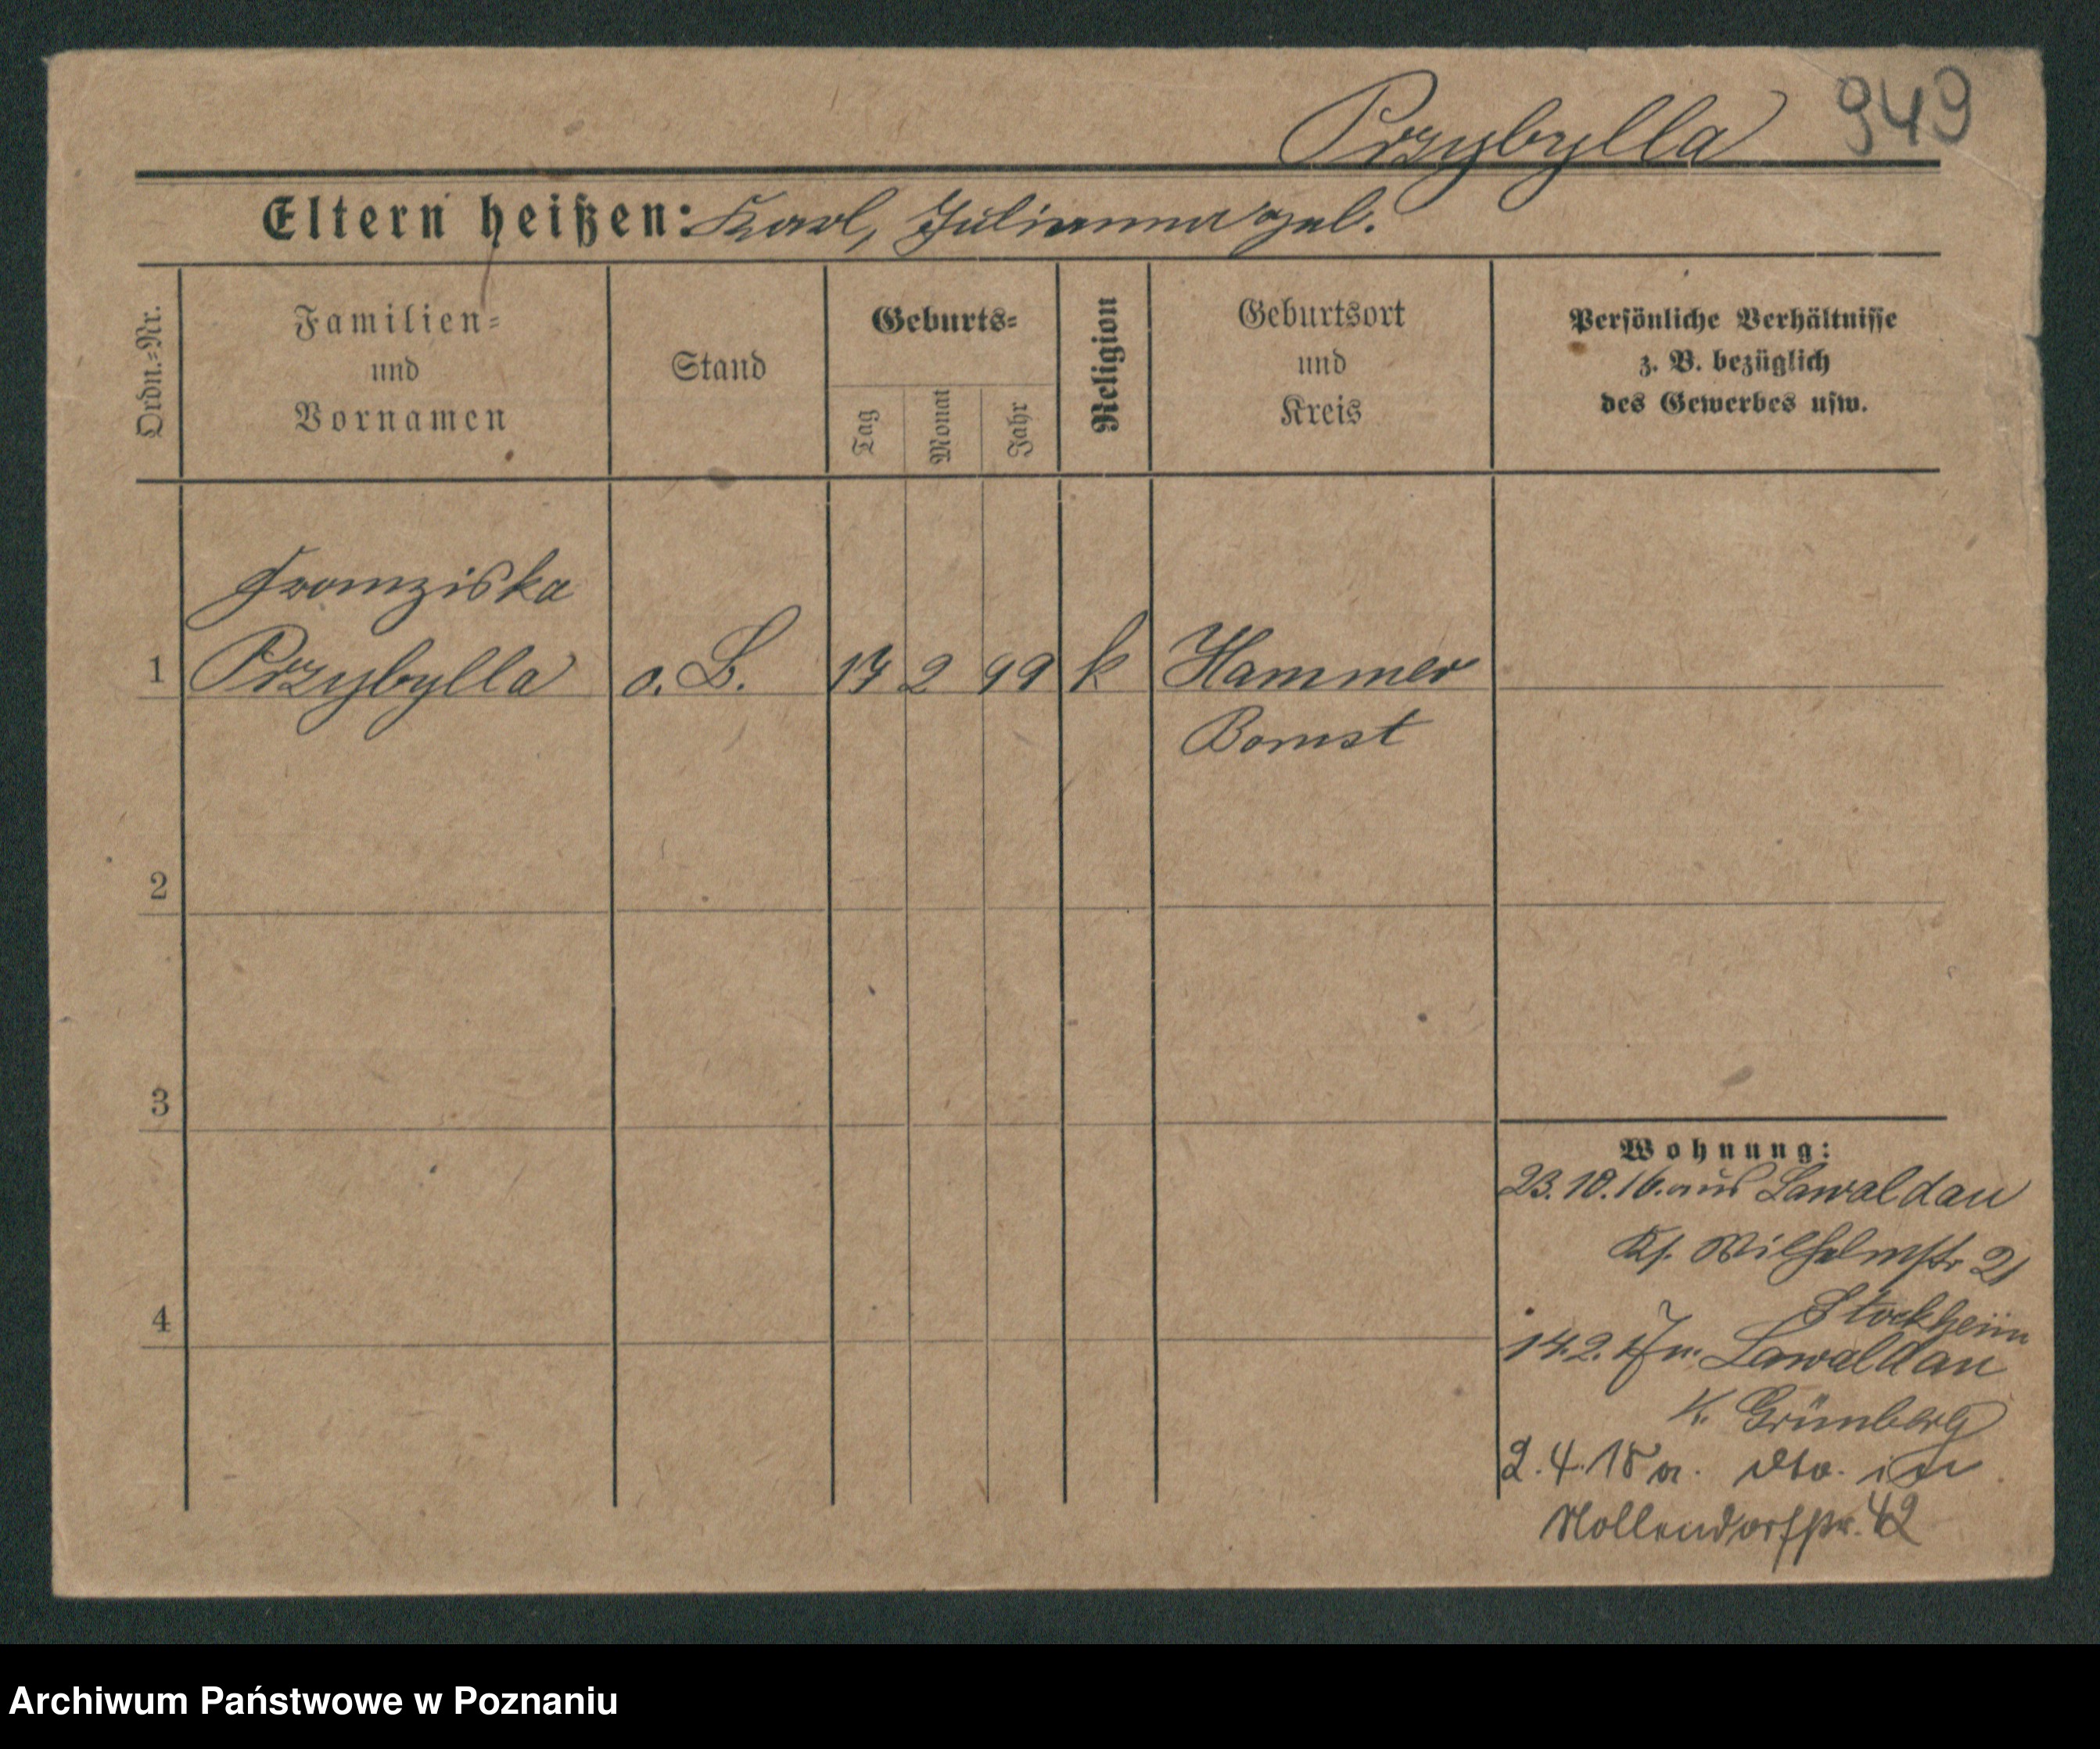 Przybylla 949
Eltern heißen: Karl, Julianna geb.
Ordn.=Nr.
Familien=
und
Vornamen
Stand
Geburts=
Tag
Monat
Jahr
Religion
Geburtsort
und
Kreis
Persönliche Verhältnisse
z. B. bezüglich
des Gewerbes usw.
Franziska
1 Przybylla o. B. 14 2 99 k Hammer
Bomst
2
3
4
Wohnung:
23.10.16. aus Lawaldau
Wilhelmstr 21
Stockheim
14.2. 17 n. Lawaldau
K. Grünberg
2.4.18 a. dto. in
Nollendorfstr. 42
Archiwum Państwowe w Poznaniu